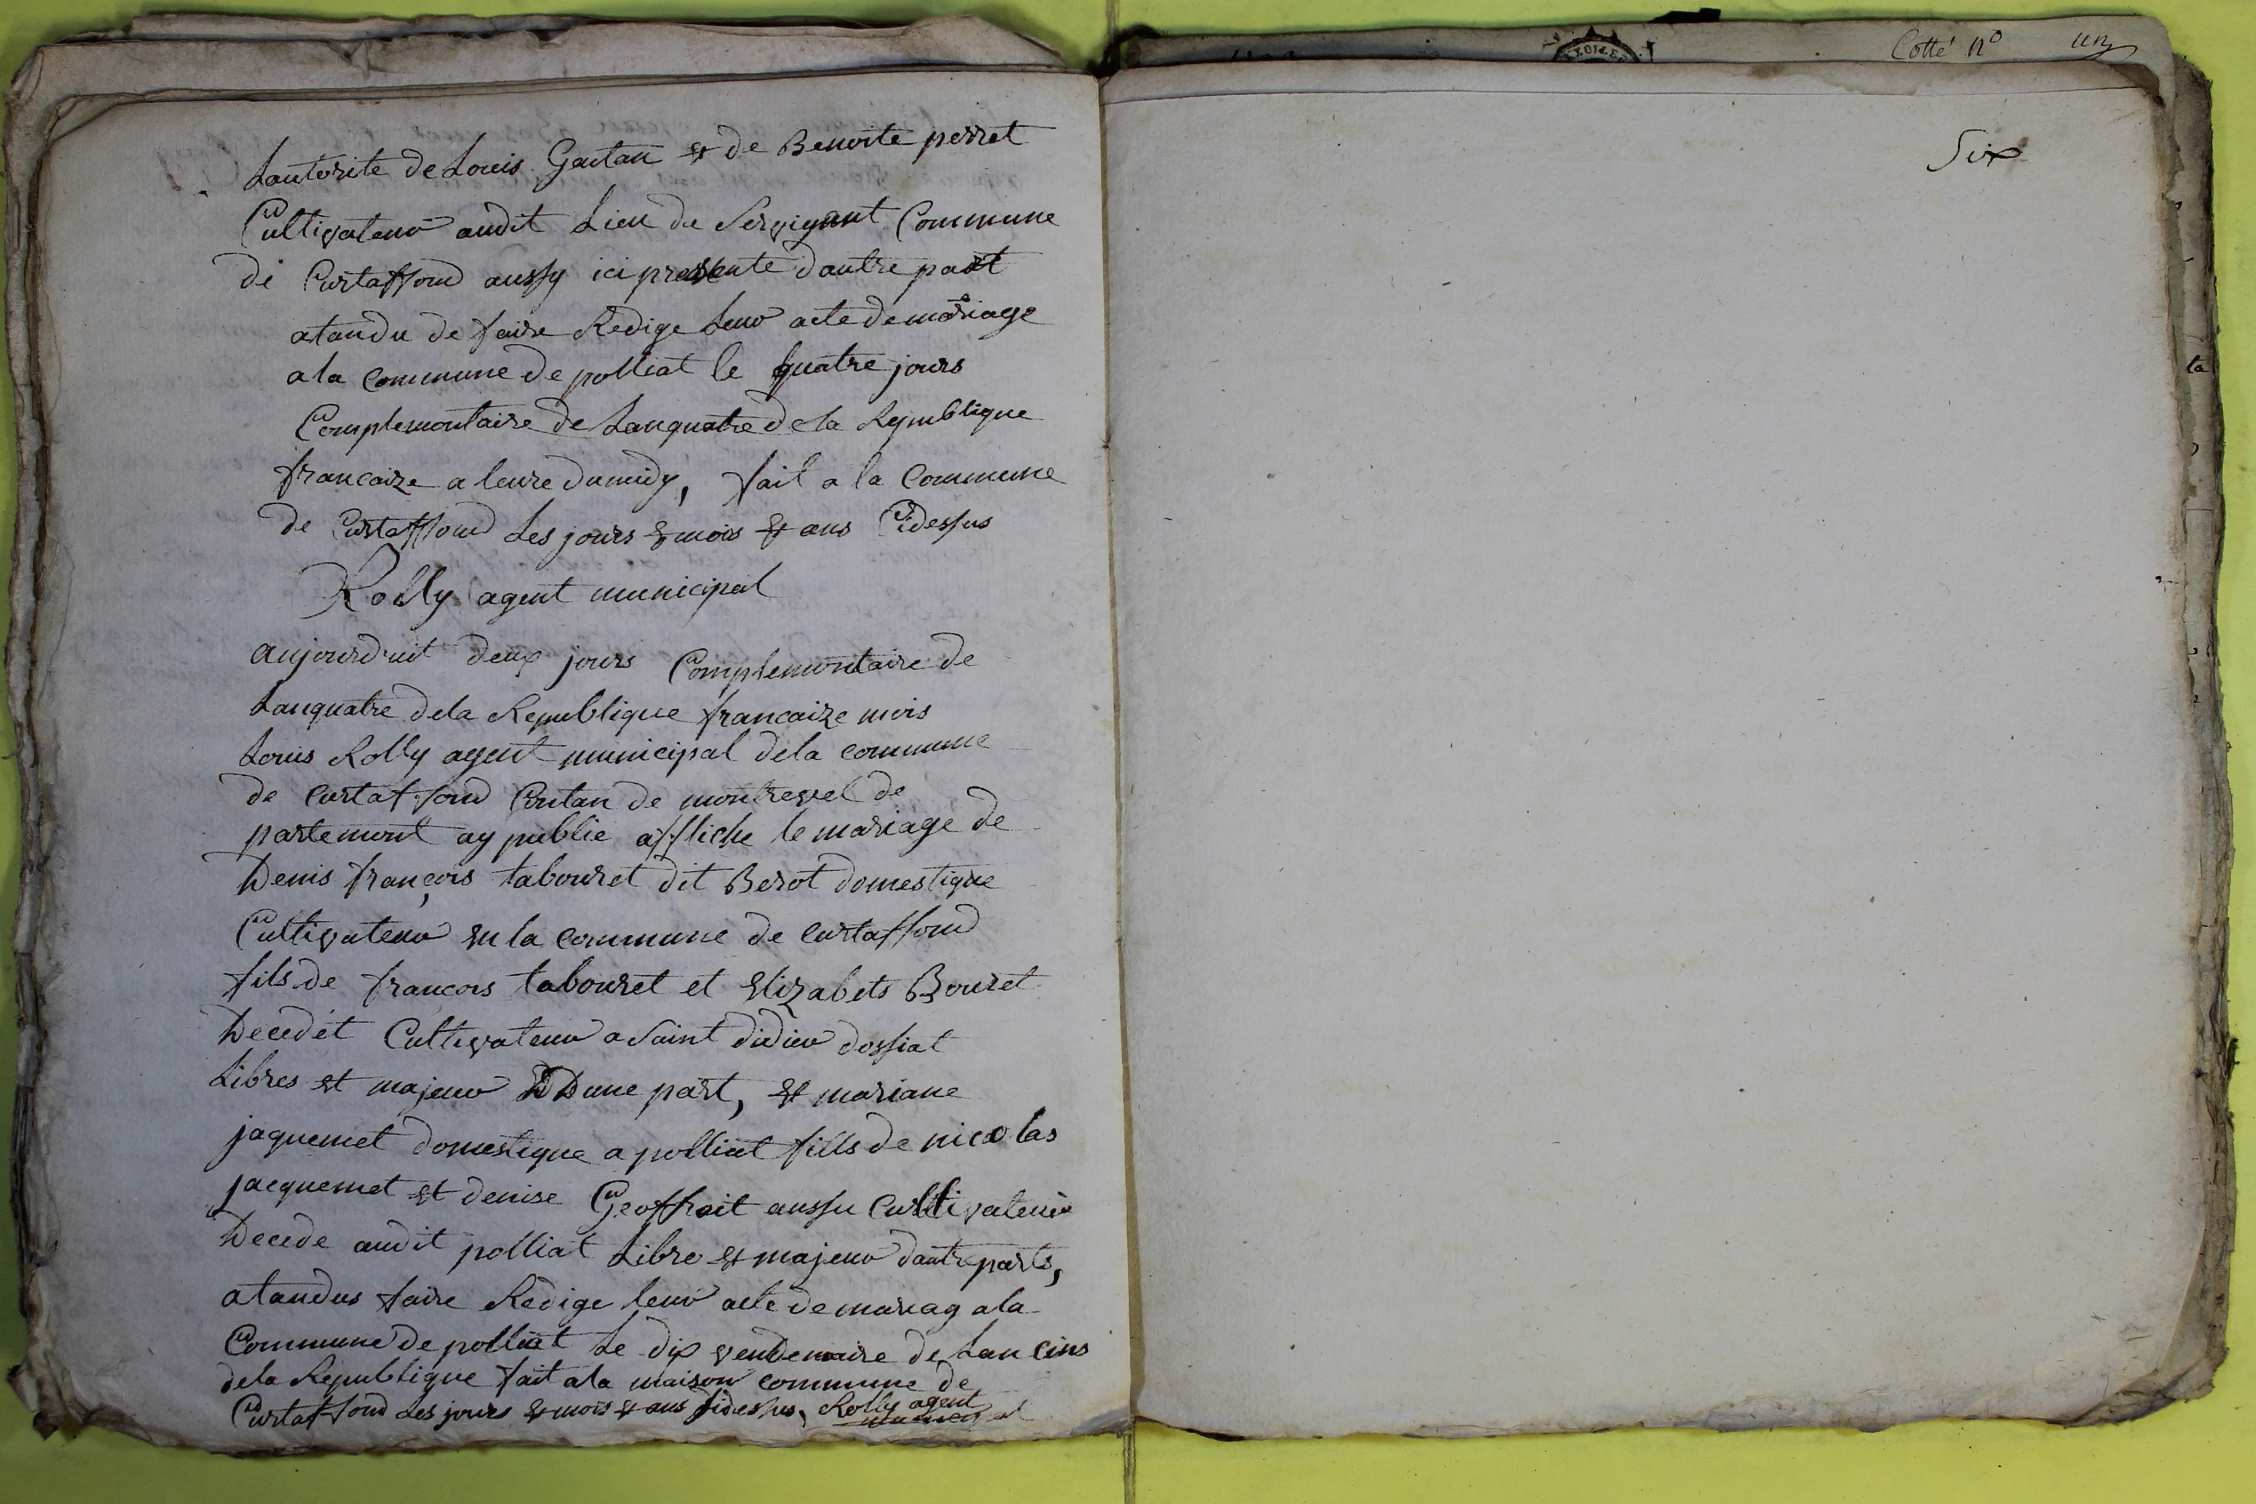 Lautorite de Louis Gautan et de Benoite perret
Cultivateur audit Lieu de Servignat Commune
de Curtaffond aussy ici presente dautre part
atandu de faire Redige leur acte de mariage
a la commune de polliat le quatre jours
Complemontaire de Lanquatre de la Republique
francaize a leure dumidy, fait a la Commune
de Curtaffond Les jours & mois & ans Cidessus
Rolly agent municipal
aujourduit deux jours Complemontaire de
Lanquatre dela Republique francaize mois
Louis Rolly agent municipal dela commune
de Curtaffond Cintan de montrevel de
partemont ay publie affliche le mariage de
Denis françois tabouret dit Berot domestique
Cultivateur en la commune de curtaffond
fils de francois tabouret et Elizabets Bouret
Decedét Cultivateur a Saint didier dossiat
Libres et majeur Dune part, et mariane
jaquemet domestique a polliat fills de nicolas
jacquemet et denise Geoffrait aussu Cultivateur
Decede audit polliat Libre et majeur dautreparts,
atandus faire Redige leur acte de mariag ala
Commune de polliat Le dix vendemaire de Lan cins
dela Republique fait ala maison commune de
Curtaffond Les jours & mois & ans sidessus, Rolly agent
municipal
Cotté n° un
Six
ta